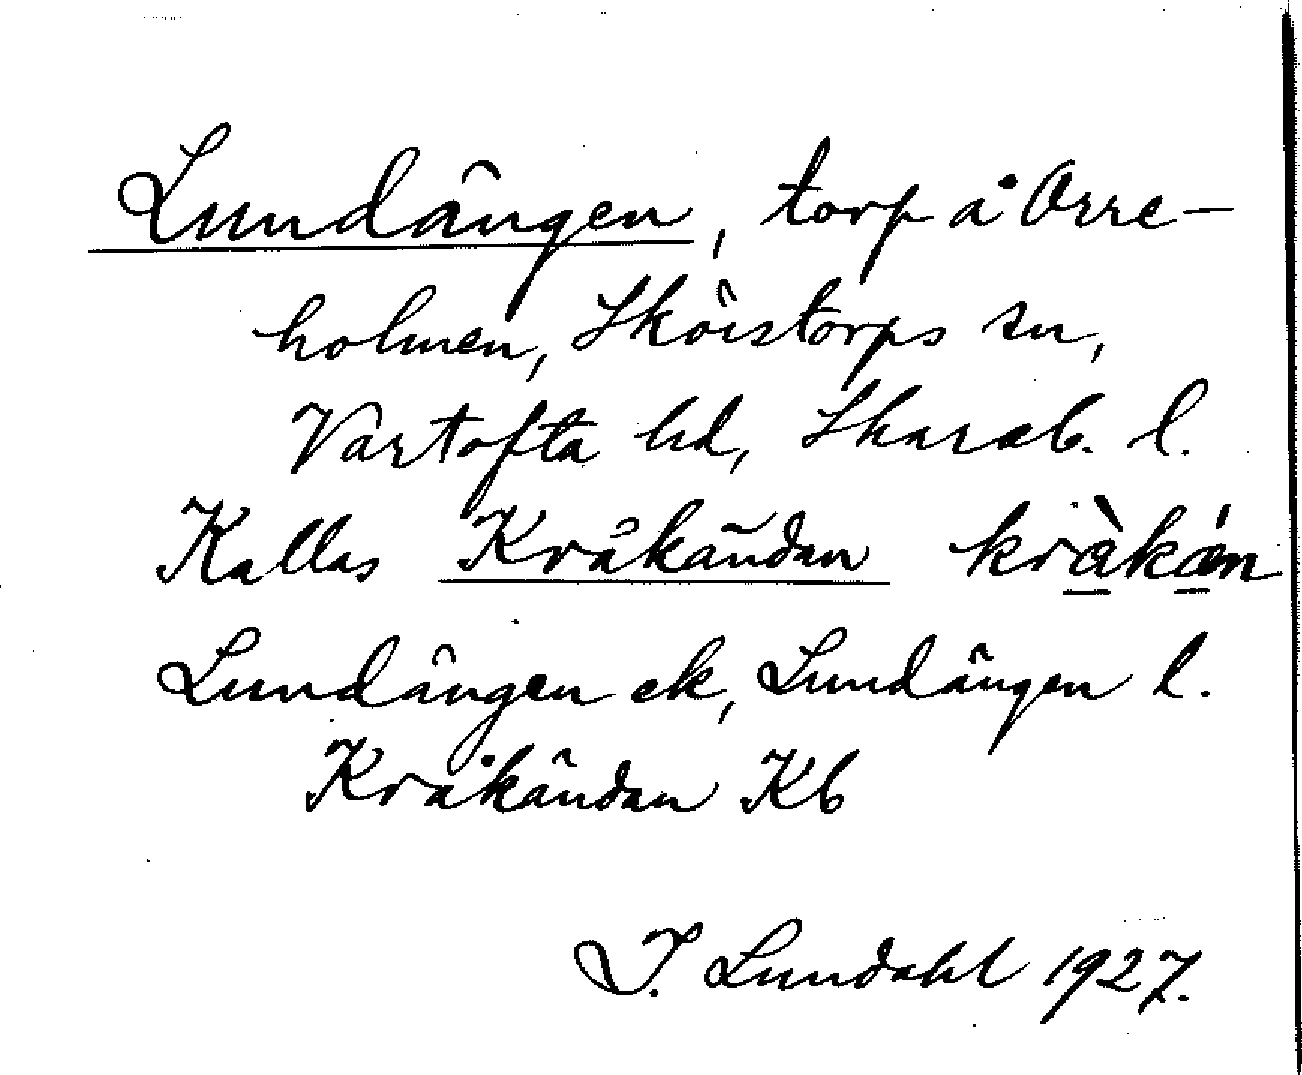 Lundängen, torp å Orre-
holmen, Skörstorps sn,
Vartofta hd, Skarab. l.
Kallas Kråkändan kråkæn
Lundängen ek, Lundängen l.
Kråkändan Kb
I. Lundahl 1927.